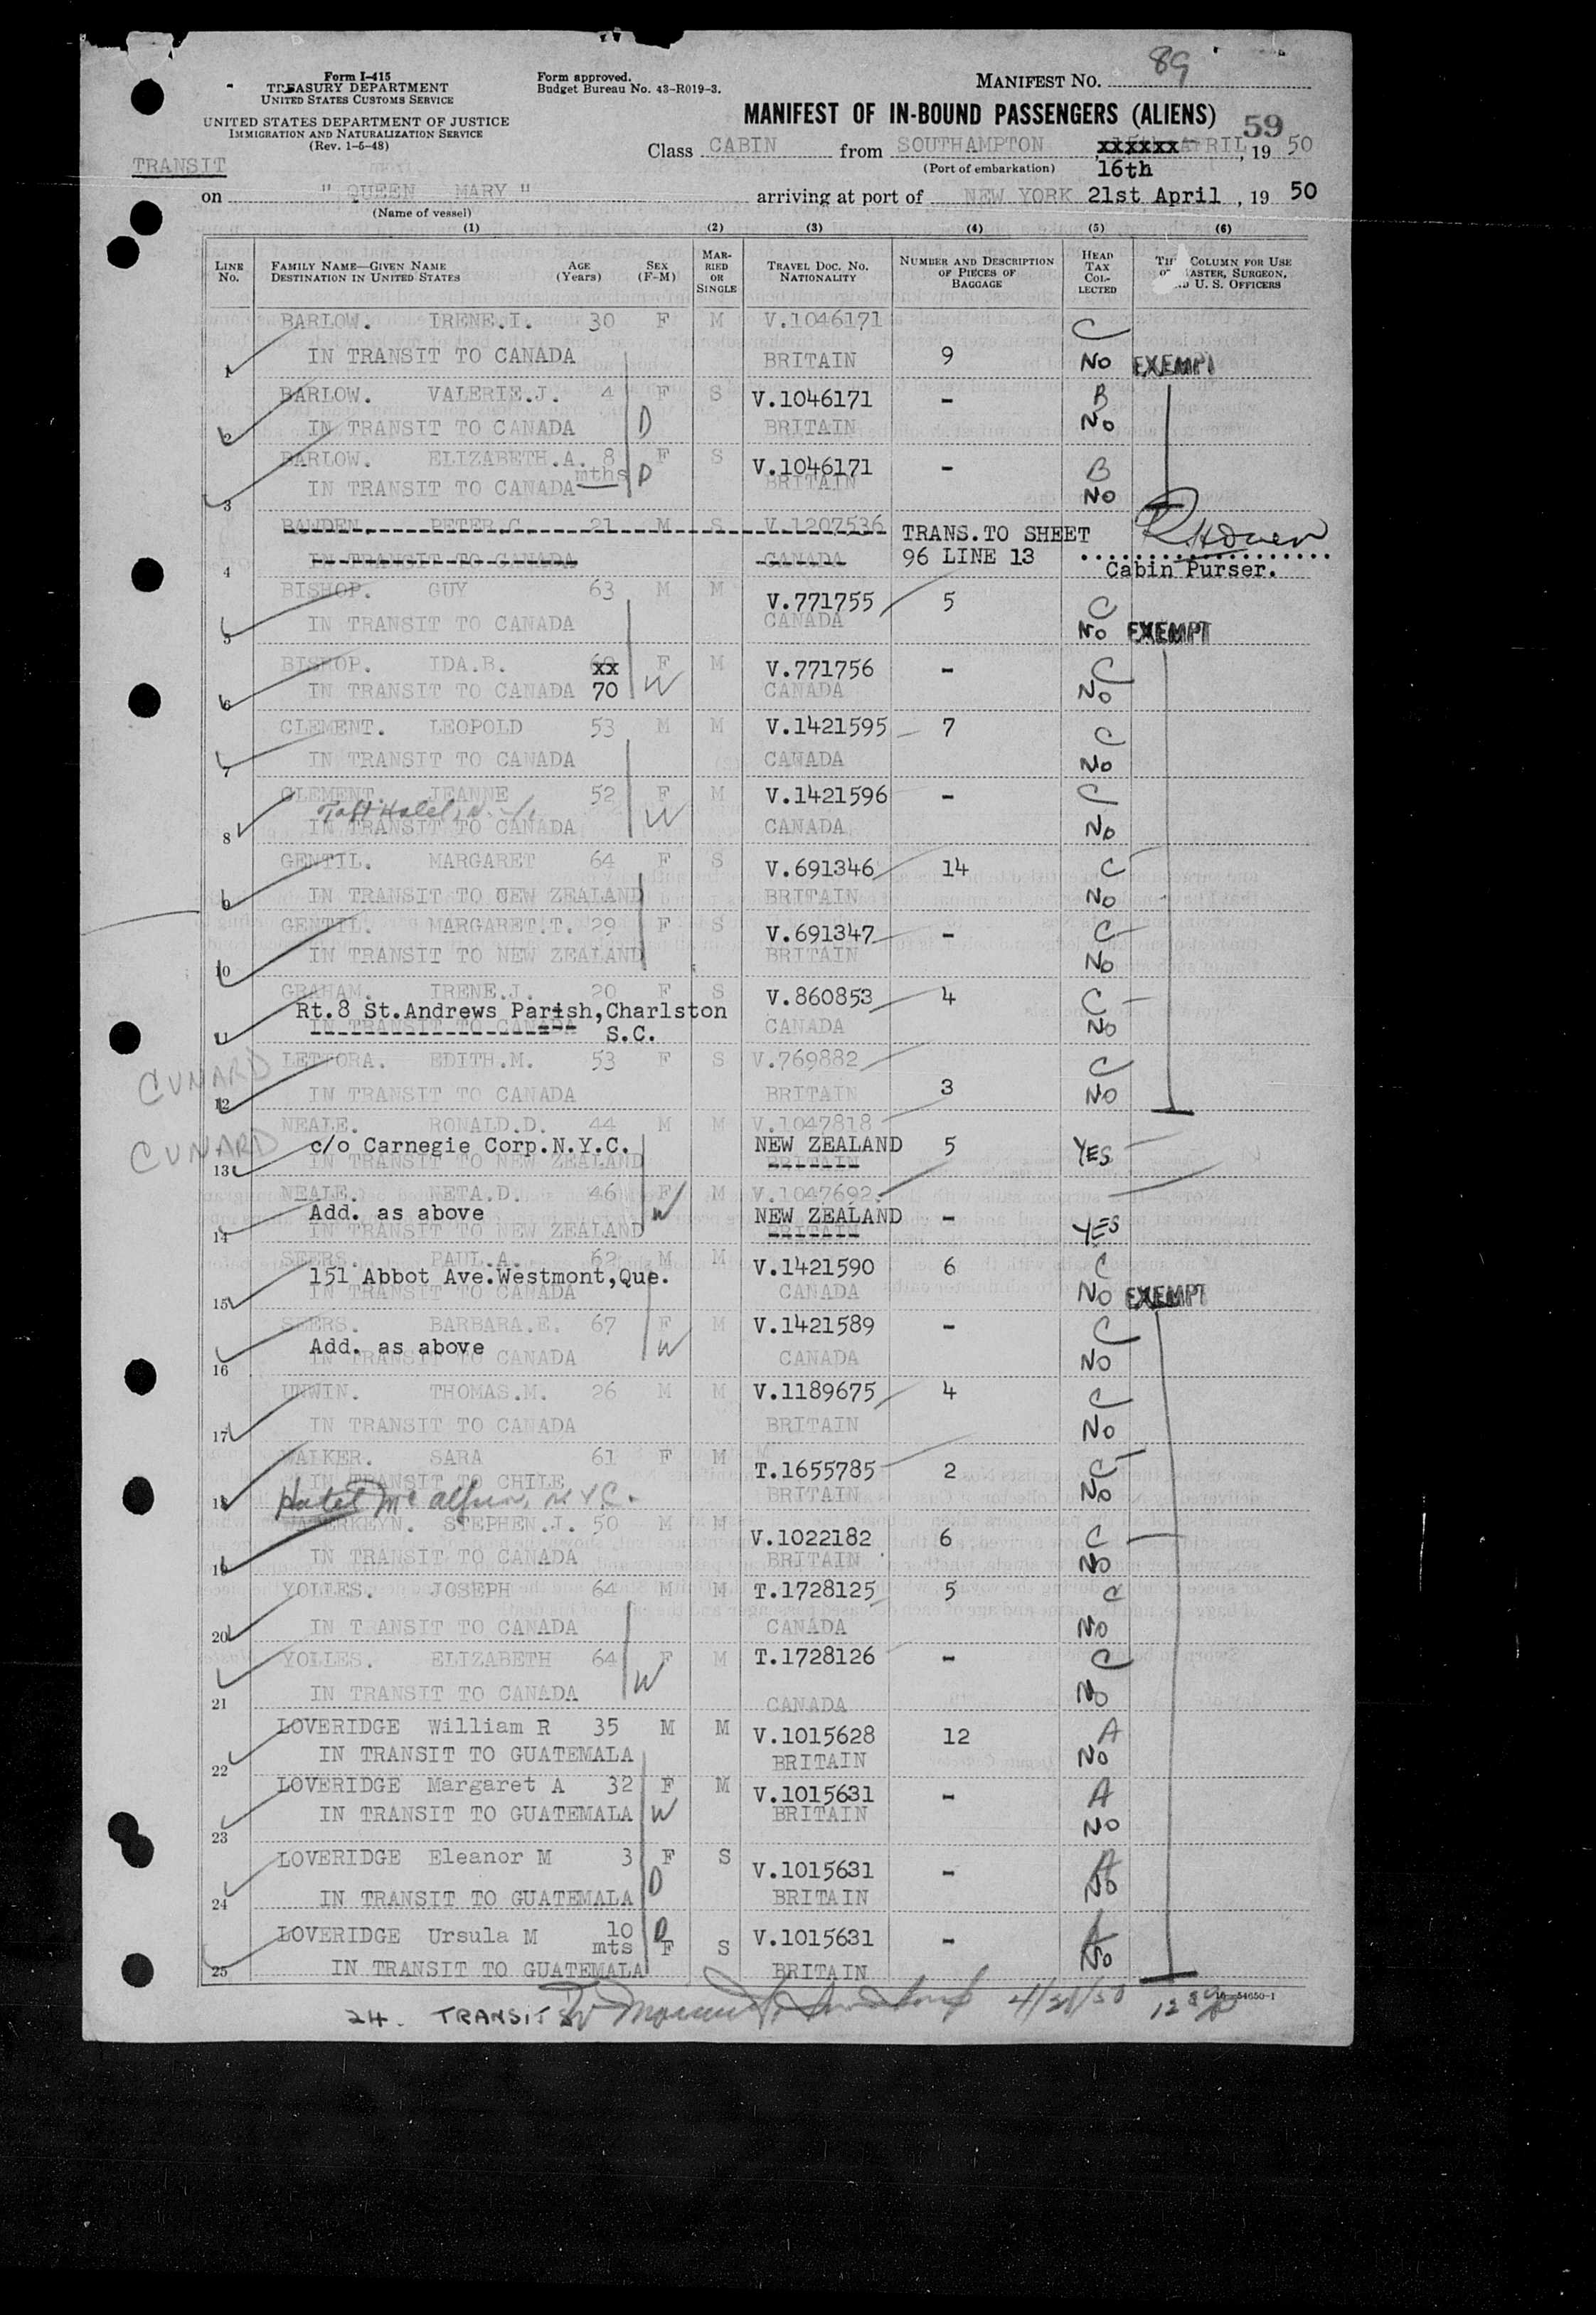 Form I-415
TREASURY DEPARTMENT
UNITED STATES CUSTOMS SERVICE
UNITED STATES DEPARTMENT OF JUSTICE
IMMIGRATION AND NATURALIZATION SERVICE
(Rev. 1-5-48)
Form approved.
Budget Bureau No. 43-R019-3.
MANIFEST NO. 89
MANIFEST OF IN-BOUND PASSENGERS (ALIENS) 59
TRANSIT
Class CABIN from SOUTHAMPTON xxxxxx APRIL, 19 50
(Port of embarkation) 16th
on " QUEEN MARY " arriving at port of NEW YORK 21st April, 19 50
(Name of vessel)
(1) (2) (3) (4) (5) (6)
LINE NO. FAMILY NAME—GIVEN NAME DESTINATION IN UNITED STATES AGE (Years) SEX (F-M) MARRIED OR SINGLE TRAVEL DOC. NO. NATIONALITY NUMBER AND DESCRIPTION OF PIECES OF BAGGAGE HEAD TAX COLLECTED COLUMN FOR USE MASTER, SURGEON, U. S. OFFICERS
BARLOW. IRENE.I. 30 F M V.1046171 C
1 IN TRANSIT TO CANADA BRITAIN 9 NO EXEMPT
BARLOW. VALERIE.J. 4 F S V.1046171 - B
2 IN TRANSIT TO CANADA D BRITAIN NO
BARLOW. ELIZABETH.A. 8 mths F S V.1046171 - B
3 IN TRANSIT TO CANADA D BRITAIN NO
BAWDEN. PETER.C. 21 M S V.1207536 TRANS.TO SHEET
4 IN TRANSIT TO CANADA CANADA 96 LINE 13 Cabin Purser.
BISHOP. GUY 63 M M V.771755 5 C
5 IN TRANSIT TO CANADA CANADA NO EXEMPT
BISHOP. IDA.B. xx F M V.771756 - C
6 IN TRANSIT TO CANADA 70 W CANADA NO
CLEMENT. LEOPOLD 53 M M V.1421595 7 C
7 IN TRANSIT TO CANADA CANADA NO
CLEMENT. JEANNE 52 F M V.1421596 - C
Taft Hotel, N.Y.
8 IN TRANSIT TO CANADA W CANADA NO
GENTIL. MARGARET 64 F S V.691346 14 C
9 IN TRANSIT TO NEW ZEALAND BRITAIN NO
GENTIL. MARGARET.T. 29 F S V.691347 - C
10 IN TRANSIT TO NEW ZEALAND BRITAIN NO
GRAHAM. IRENE.J. 20 F S V.860853 4 C
Rt.8 St.Andrews Parish,Charlston
11 IN TRANSIT TO CANADA S.C. CANADA NO
CUNARD LETTORA. EDITH.M. 53 F S V.769882 C
12 IN TRANSIT TO CANADA BRITAIN 3 NO
NEALE. RONALD.D. 44 M M V.1047818
CUNARD c/o Carnegie Corp.N.Y.C. NEW ZEALAND 5 YES
13 IN TRANSIT TO NEW ZEALAND BRITAIN
NEALE. NETA.D. 46 F M V.1047692
Add. as above W NEW ZEALAND - YES
14 IN TRANSIT TO NEW ZEALAND BRITAIN
SEERS. PAUL.A. 62 M M V.1421590 6 C
151 Abbot Ave.Westmont,Que.
15 IN TRANSIT TO CANADA CANADA NO EXEMPT
SEERS. BARBARA.E. 67 F M V.1421589 - C
Add. as above W
16 IN TRANSIT TO CANADA CANADA NO
UNWIN. THOMAS.M. 26 M M V.1189675 4 C
17 IN TRANSIT TO CANADA BRITAIN NO
WALKER. SARA 61 F M T.1655785 2 C
IN TRANSIT TO CHILE BRITAIN NO
18 Hotel Mc Alpin, N.Y.C.
WATERKEYN. STEPHEN.J. 50 M M V.1022182 6 C
19 IN TRANSIT TO CANADA BRITAIN NO
YOLLES. JOSEPH 64 M M T.1728125 5 C
20 IN TRANSIT TO CANADA CANADA NO
YOLLES. ELIZABETH 64 F M T.1728126 - C
21 IN TRANSIT TO CANADA W CANADA NO
LOVERIDGE William R 35 M M V.1015628 12 A
22 IN TRANSIT TO GUATEMALA BRITAIN NO
LOVERIDGE Margaret A 32 F M V.1015631 - A
23 IN TRANSIT TO GUATEMALA W BRITAIN NO
LOVERIDGE Eleanor M 3 F S V.1015631 - A
24 IN TRANSIT TO GUATEMALA D BRITAIN NO
LOVERIDGE Ursula M 10 mts D F S V.1015631 - A
25 IN TRANSIT TO GUATEMALA BRITAIN NO
24. TRANSITS 4/21/50
16—54650-1